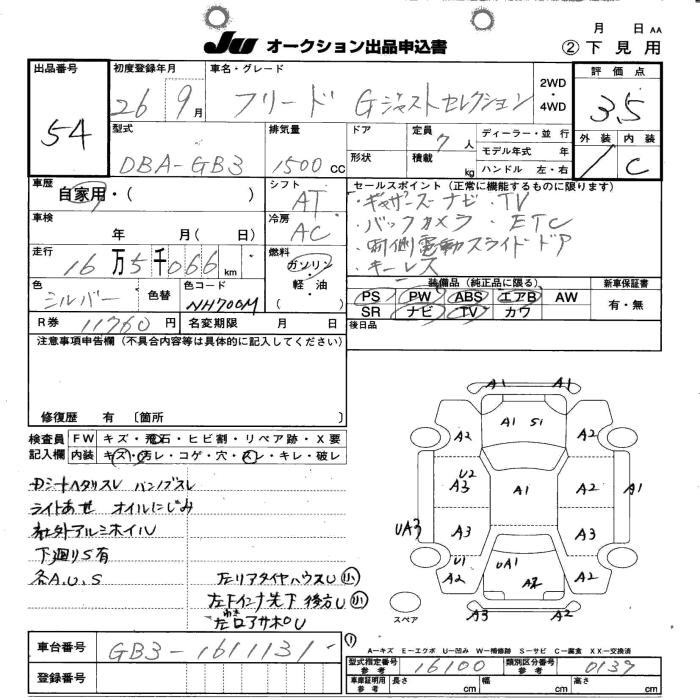 JU オークション出品申込書
月 日 AA
② 下見用
出品番号 54
初度登録年月 26 9月
車名・グレード フリード Gジャストセレクション
2WD・4WD
評価点 3.5
外装 内装 C
型式 DBA-GB3
排気量 1500 cc
ドア
形状
定員 7 人
積載 kg
ディーラー・並行
モデル年式 年
ハンドル 左・右
車歴 自家用・( )
シフト AT
車検 年 月(日)
冷房 AC
走行 16万5千066 km
燃料 ガソリン・軽油 ( )
色 シルバー 色替
色コード NH700M
R券 11760円 名変期限 月 日
セールスポイント (正常に機能するものに限ります)
・ギャザーズナビ・TV
・バックカメラ・ETC
・両側電動スライドドア
・キーレス
装備品 (純正品に限る)
PS PW ABS エアB AW
SR ナビ TV カワ
新車保証書 有・無
後日品
注意事項申告欄 (不具合内容等は具体的に記入してください)
修復歴 有 〔箇所 〕
検査員記入欄
FW キズ・飛石・ヒビ割・リペア跡・X要
内装 キズ・汚レ・コゲ・穴・スレ・キレ・破レ
シートヘタリスレ バンパスレ
ライトあせ オイルにじみ
社外アルミホイル
下廻りS有
各A.U.S
左リアタイヤハウスU 小
左下インナ先下 後方U 小
A1 A1
A1 S1
A2 A2
U2
A3 A1 A2 A1
UA3 A3 A3
U1
A2 UA1 A2 A2
A3 A2
スペア
車台番号 GB3-1611131
登録番号
A−キズ E−エクボ U−凹み W−補修跡 S−サビ C−腐食 XX−交換済
型式指定番号 参考 16100
類別区分番号 参考 0137
車庫証明用 参考 長さ cm 幅 cm 高さ cm